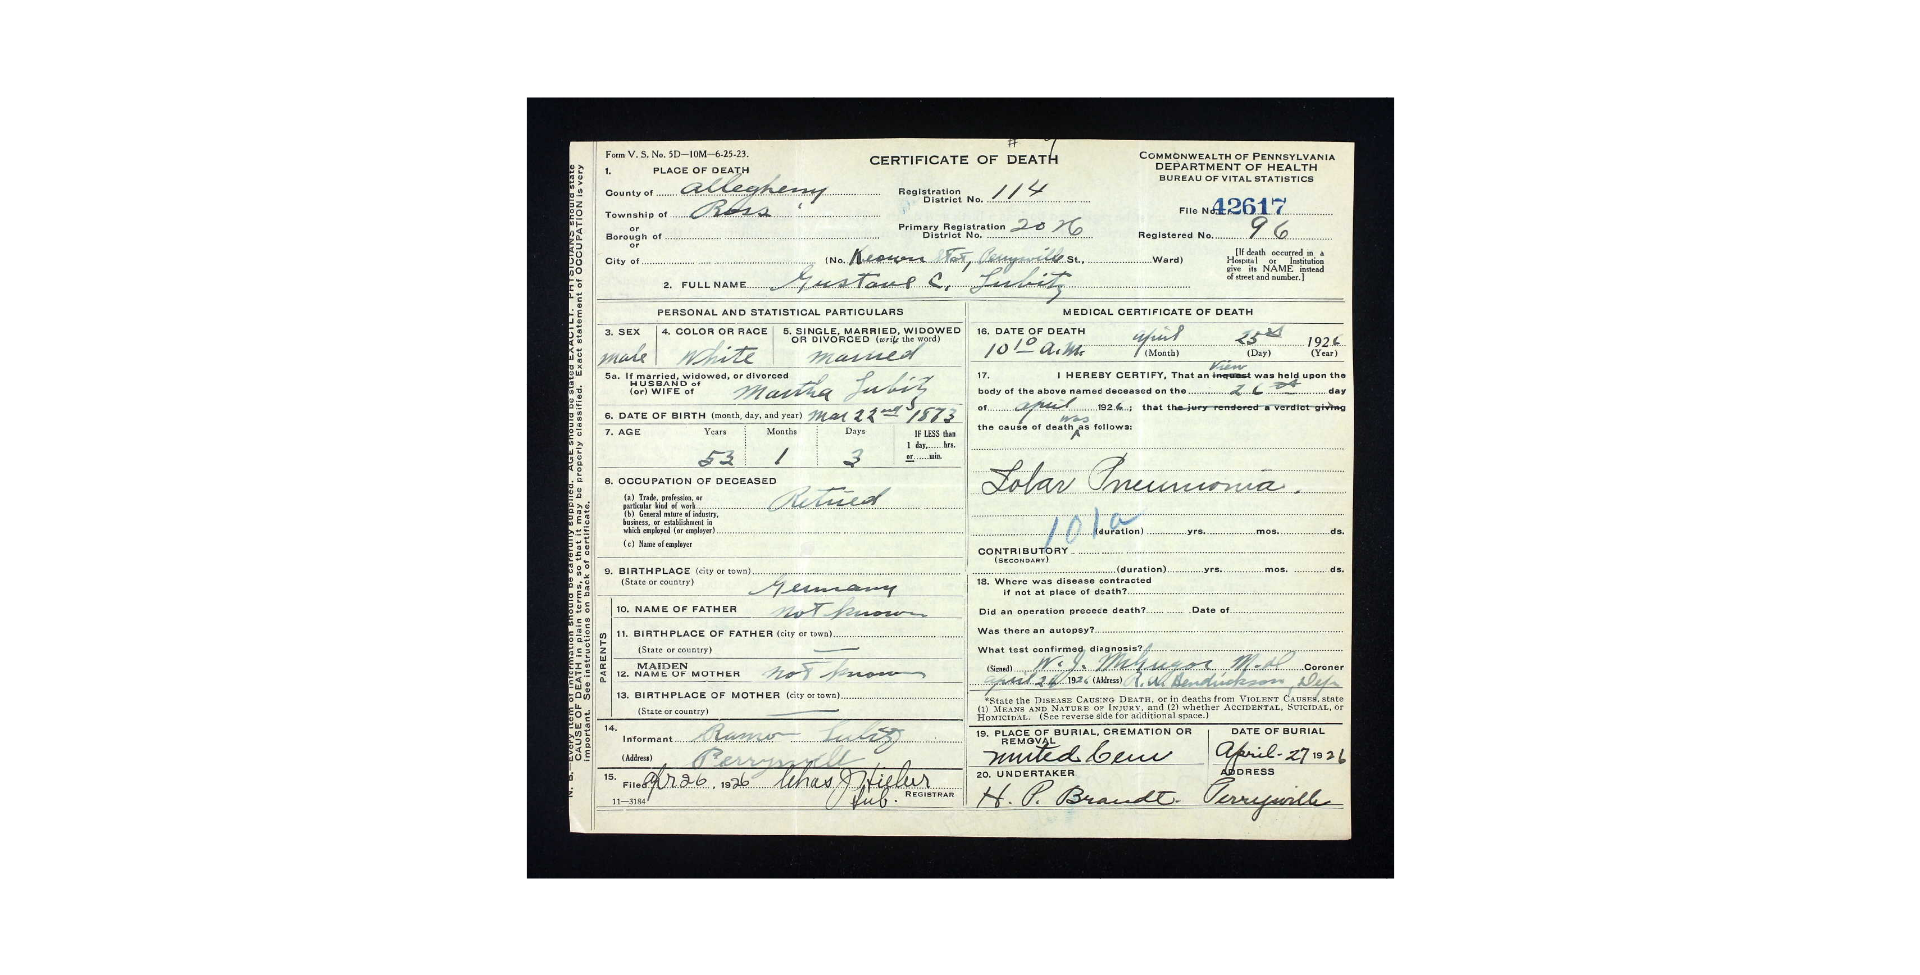 Form V. S. No. 5D—10M—6-25-23.
CERTIFICATE OF DEATH
COMMONWEALTH OF PENNSYLVANIA
DEPARTMENT OF HEALTH
BUREAU OF VITAL STATISTICS
1. PLACE OF DEATH
County of Allegheny
Township of Ross
or
Borough of
or
City of
Registration District No. 114
Primary Registration District No.
File No. 42617
Registered No. 96
(No. Keown Perrysville St., Ward)
[If death occurred in a Hospital or Institution give its NAME instead of street and number.]
2. FULL NAME Gustave C. Lubitz
PERSONAL AND STATISTICAL PARTICULARS
3. SEX
male
4. COLOR OR RACE
White
5. SINGLE, MARRIED, WIDOWED OR DIVORCED (write the word)
married
5a. If married, widowed, or divorced
HUSBAND of
(or) WIFE of Martha Lubitz
6. DATE OF BIRTH (month, day, and year) Mar 22nd 1873
7. AGE Years Months Days
53 1 3
IF LESS than
1 day,......hrs.
or......min.
8. OCCUPATION OF DECEASED
(a) Trade, profession, or particular kind of work Retired
(b) General nature of industry, business, or establishment in which employed (or employer)
(c) Name of employer
9. BIRTHPLACE (city or town)
(State or country) Germany
PARENTS
10. NAME OF FATHER not known
11. BIRTHPLACE OF FATHER (city or town)
(State or country) —
12. MAIDEN NAME OF MOTHER not known
13. BIRTHPLACE OF MOTHER (city or town)
(State or country) —
14.
Informant Lubitz
(Address) Perrysville
15.
Filed Apr 26, 1926 Chas J Hieber
Sub. REGISTRAR
11—3184
MEDICAL CERTIFICATE OF DEATH
16. DATE OF DEATH April 25th 1926
10 10 A.M. (Month) (Day) (Year)
17. I HEREBY CERTIFY, That an inquest View was held upon the
body of the above named deceased on the 26th day
of April 1926; that the jury rendered a verdict giving
the cause of death was as follows:
Lobar Pneumonia.
101a
(duration) yrs. mos. ds.
CONTRIBUTORY
(SECONDARY)
(duration) yrs. mos. ds.
18. Where was disease contracted
if not at place of death?
Did an operation precede death? Date of
Was there an autopsy?
What test confirmed diagnosis?
(Signed) W. J. McGregor M.D. Coroner
April 26 1926 (Address) R. A. Hendrickson, Dep
*State the DISEASE CAUSING DEATH, or in deaths from VIOLENT CAUSES, state
(1) MEANS AND NATURE OF INJURY, and (2) whether ACCIDENTAL, SUICIDAL, or
HOMICIDAL. (See reverse side for additional space.)
19. PLACE OF BURIAL, CREMATION OR REMOVAL
United Cem
DATE OF BURIAL
April-27 1926
20. UNDERTAKER
H. P. Brandt.
ADDRESS
Perrysville
N. B.—Every item of information should be carefully supplied. AGE should be stated EXACTLY. PHYSICIANS should state
CAUSE OF DEATH in plain terms, so that it may be properly classified. Exact statement of OCCUPATION is very
important. See instructions on back of certificate.